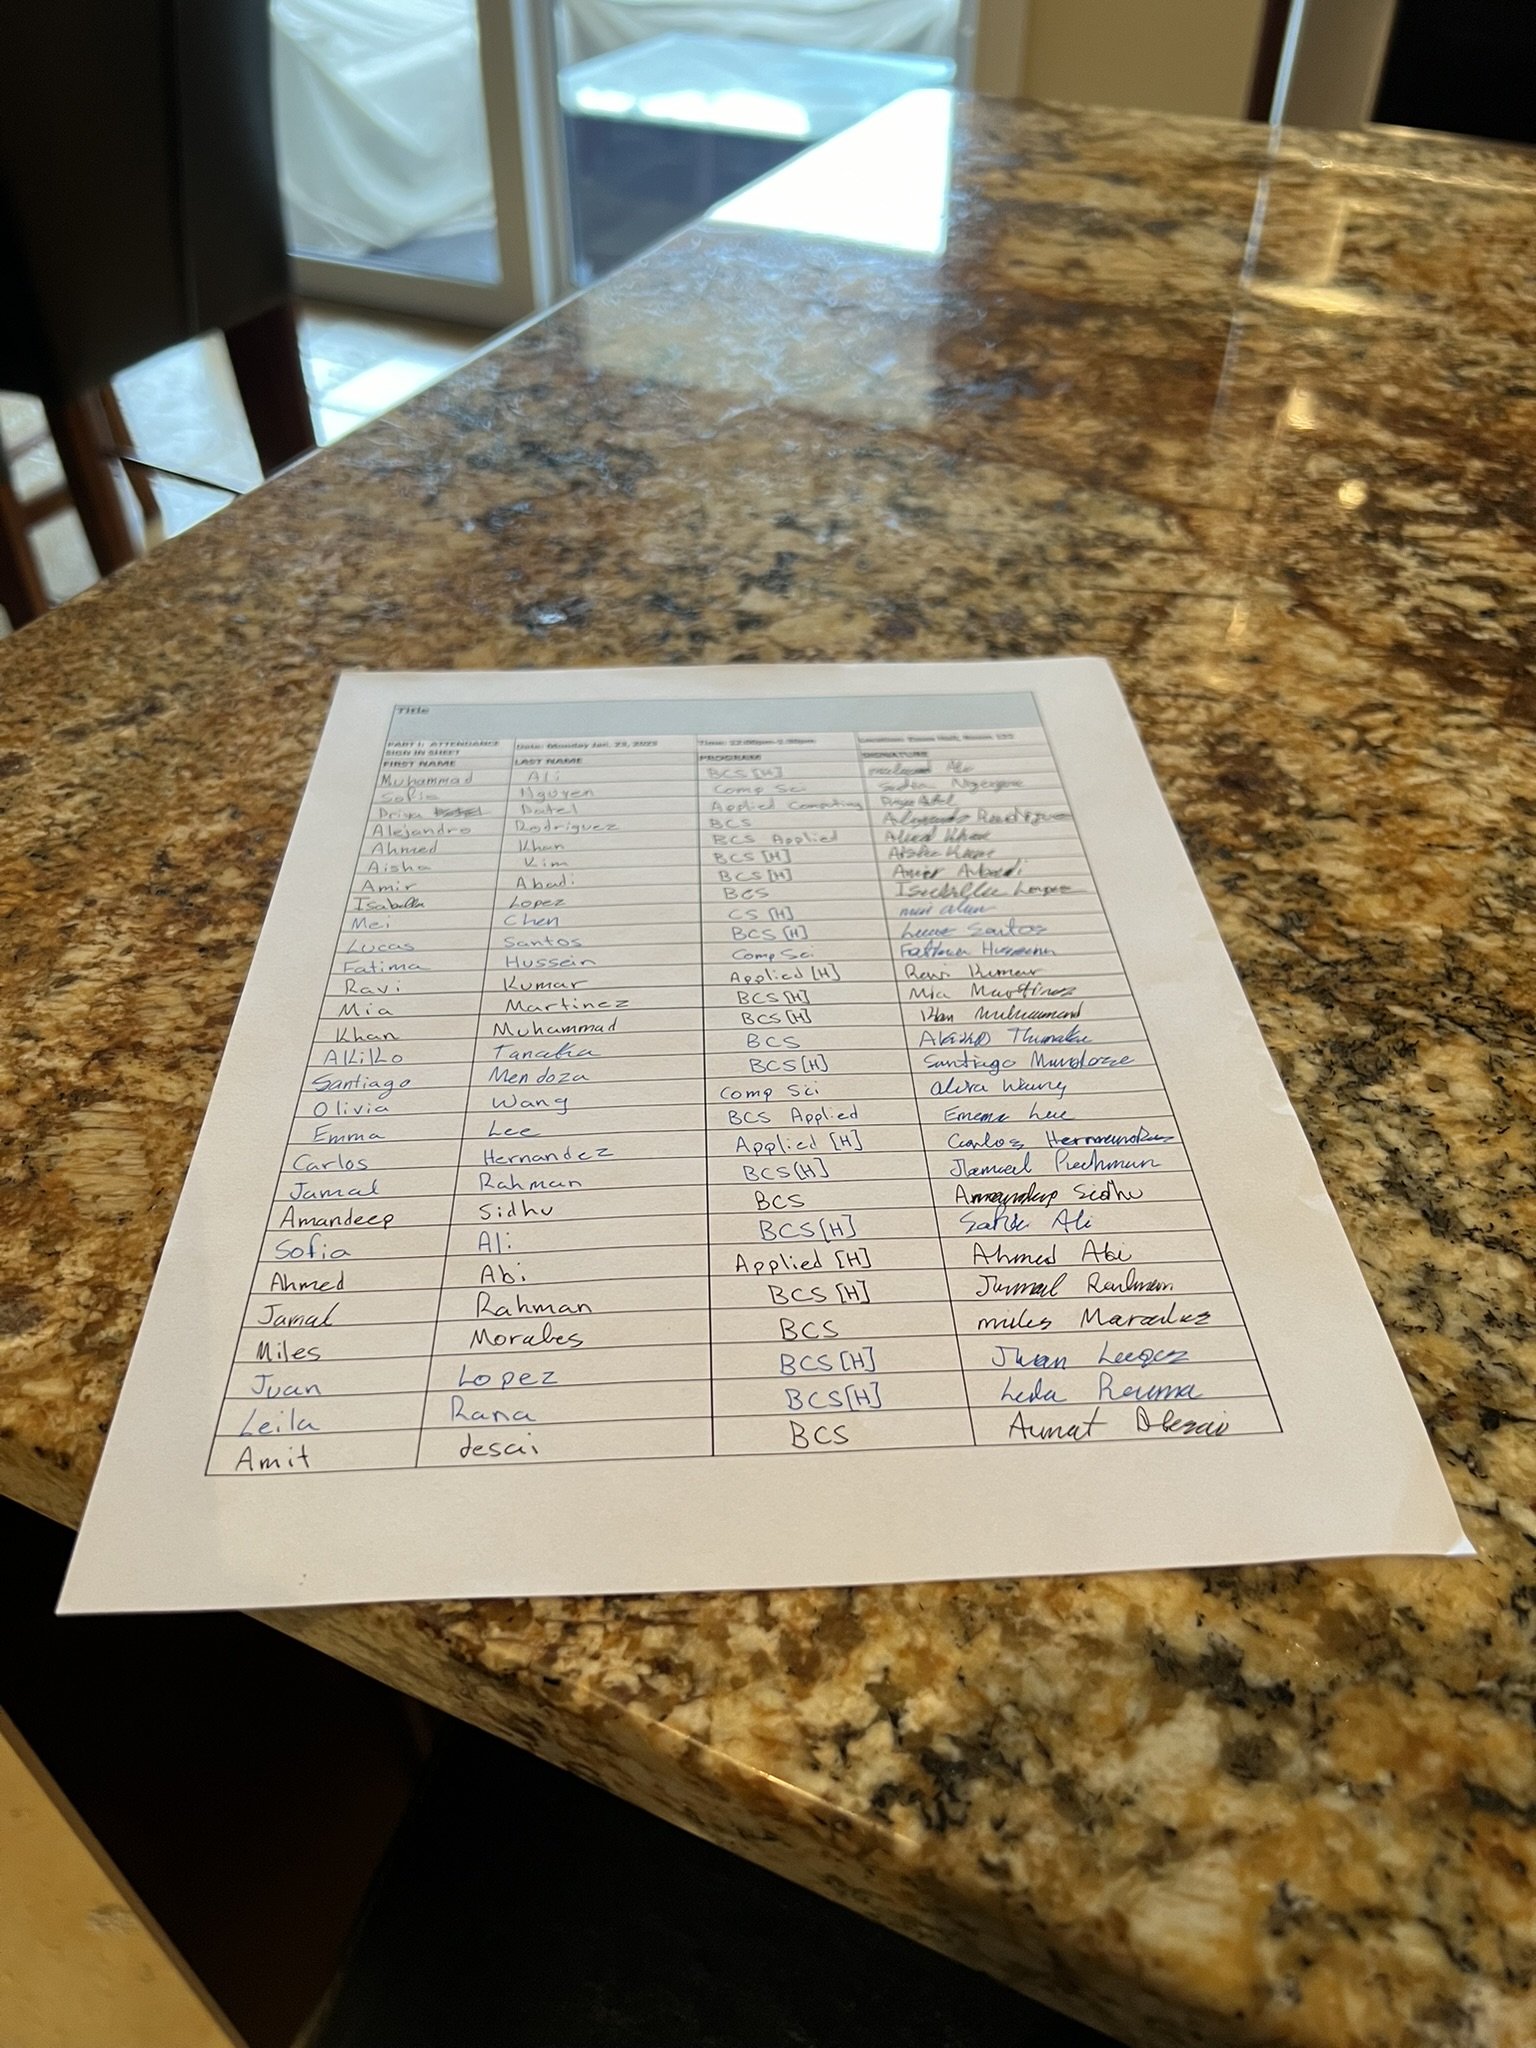 Title
PART I: ATTENDANCE SIGN IN SHEET Date: Monday Jan. 23, 2023 Time: 12:00pm-1:30pm Location: Room 122
FIRST NAME LAST NAME PROGRAM SIGNATURE
Muhammad Ali BCS [H] Ali
Sofia Nguyen Comp Sci Sofia Nguyen
Priya Patel Applied Computing
Alejandro Rodriguez BCS Alejandro Rodriguez
Ahmed Khan BCS Applied Ahmed Khan
Aisha Kim BCS [H] Aisha
Amir Abadi BCS [H] Amir Abadi
Isabella Lopez BCS Isabella Lopez
Mei Chen CS [H] mei
Lucas Santos BCS [H] Lucas Santos
Fatima Hussein Comp Sci Fatima Hussein
Ravi Kumar Applied [H] Ravi Kumar
Mia Martinez BCS [H] Mia Martinez
Khan Muhammad BCS [H] Khan Muhammad
Akiko Tanaka BCS Akiko
Santiago Mendoza BCS [H] Santiago
Olivia Wang Comp Sci Wang
Emma Lee BCS Applied Lee
Carlos Hernandez Applied [H] Carlos Hernandez
Jamal Rahman BCS [H] Jamal Rahman
Amandeep Sidhu BCS Amandeep Sidhu
Sofia Ali BCS [H] Ali
Ahmed Abi Applied [H] Ahmed Abi
Jamal Rahman BCS [H] Jamal Rahman
Miles Morales BCS miles
Juan Lopez BCS [H] Juan
Leila Rana BCS [H] Leila
Amit desai BCS